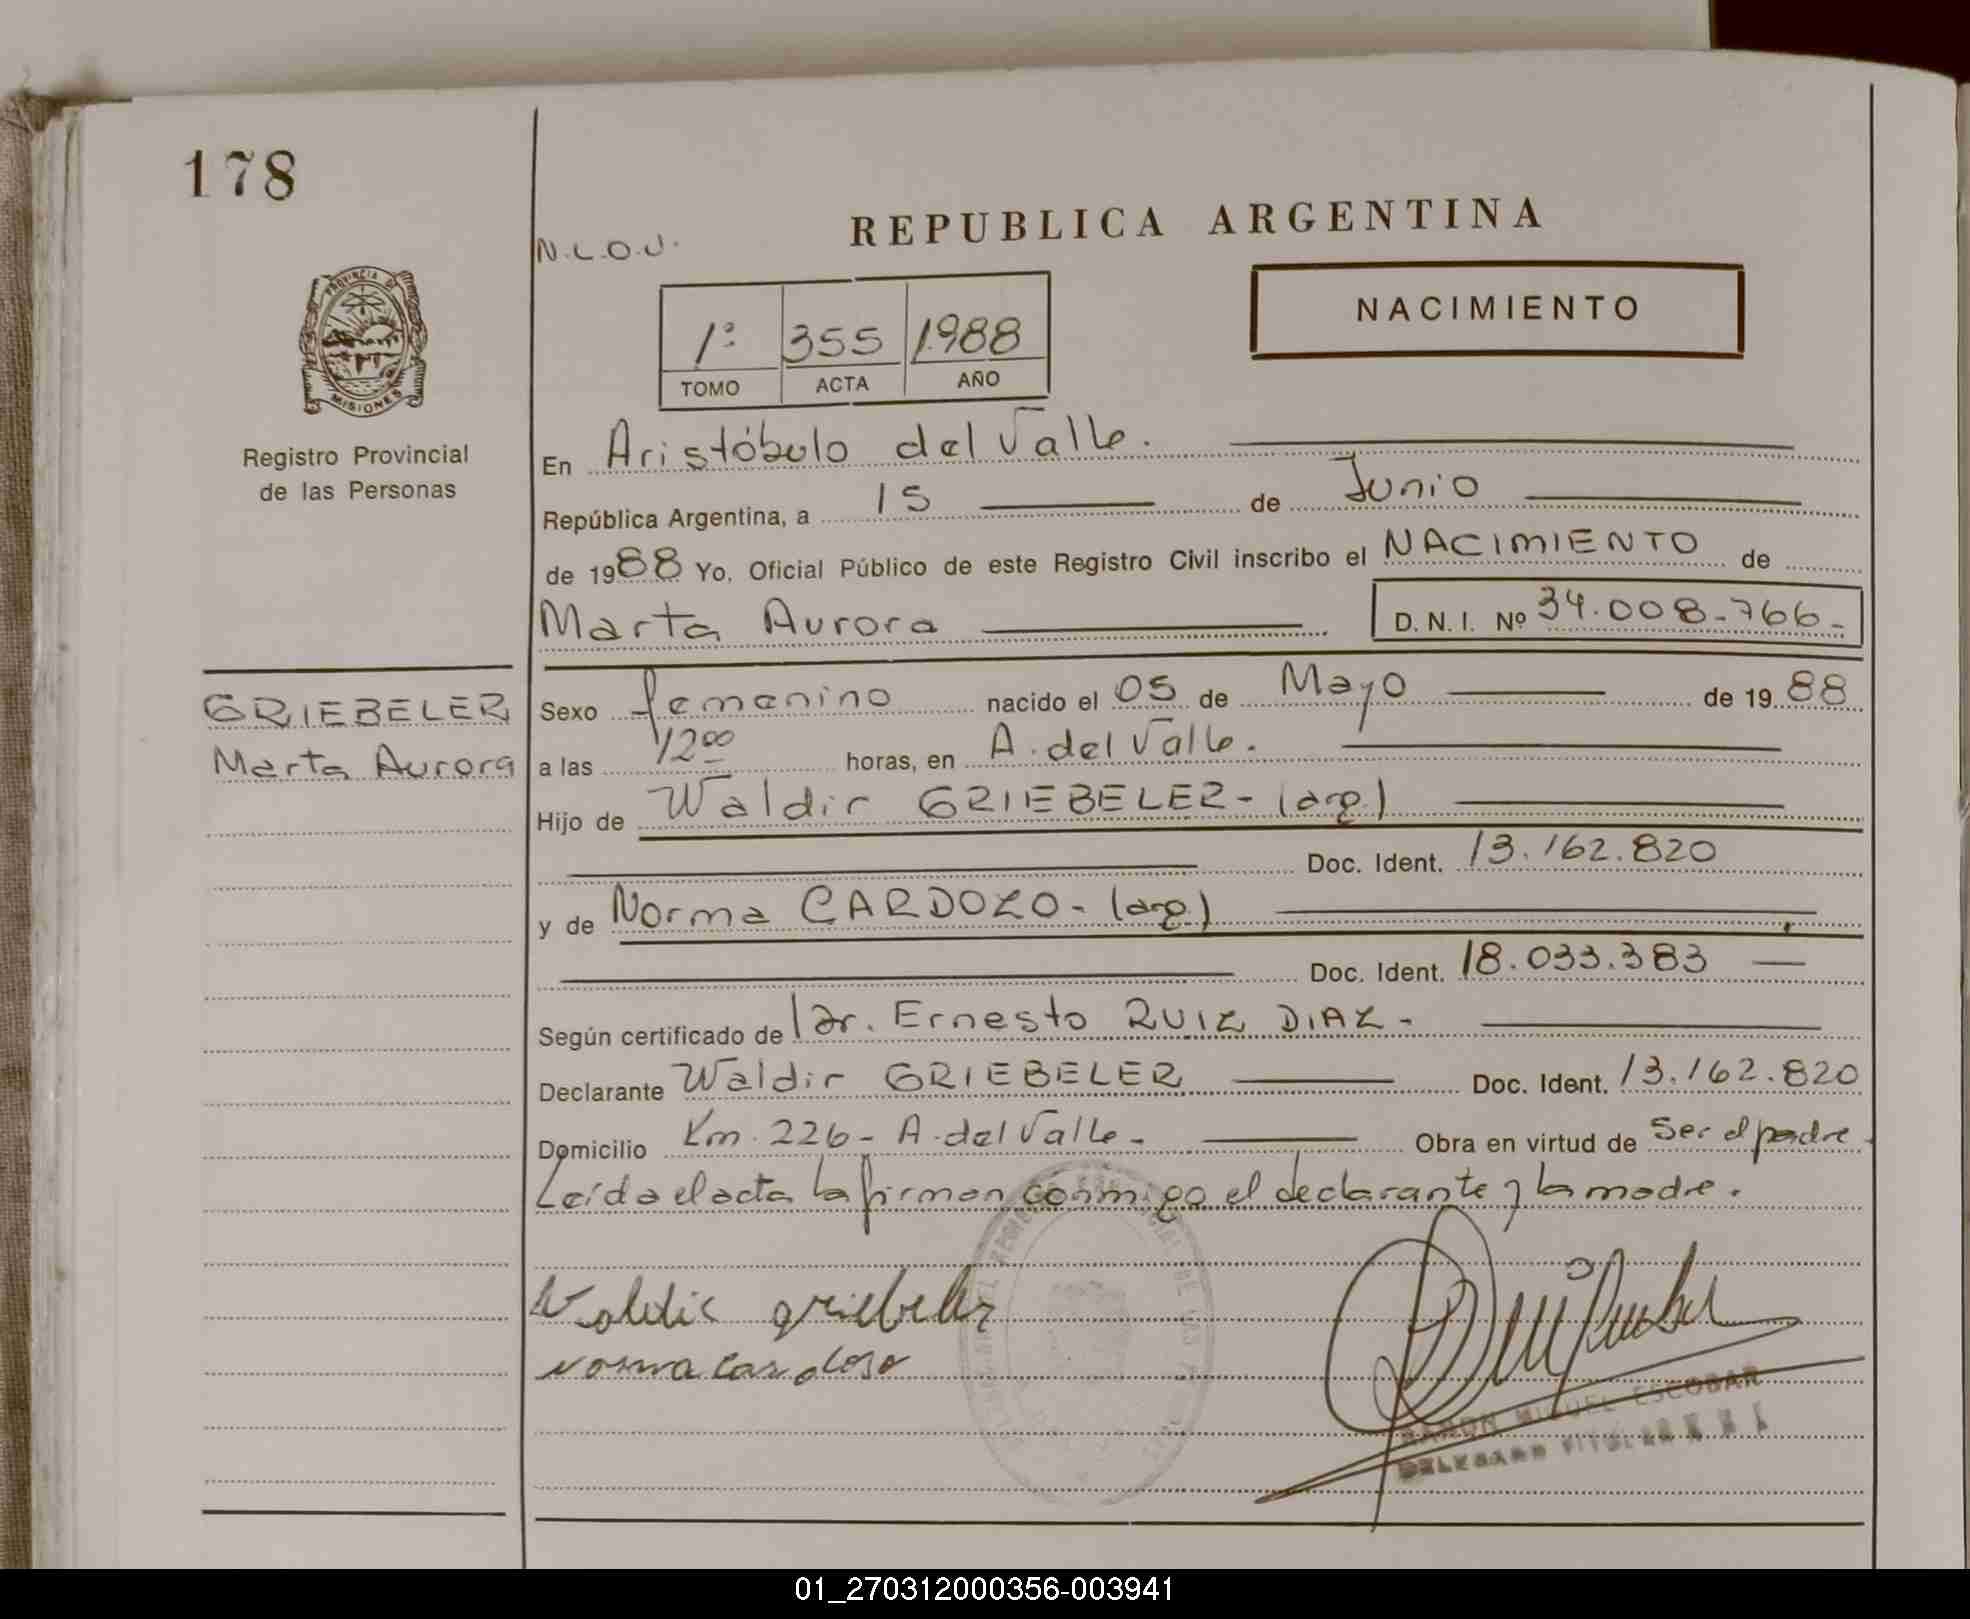 178
REPUBLICA ARGENTINA
N.L.O.U.
NACIMIENTO
1º 355 1988
TOMO ACTA AÑO
PROVINCIA DE MISIONES
Registro Provincial
de las Personas
GRIEBELER
Marta Aurora
En Aristóbulo del Valle.
República Argentina, a 15 de Junio
de 1988 Yo, Oficial Público de este Registro Civil inscribo el NACIMIENTO de
Marta Aurora D. N. I. Nº 34.008-766-
Sexo femenino nacido el 05 de Mayo de 1988
a las 12⁰⁰ horas, en A. del Valle.
Hijo de Waldir GRIEBELER - (arg.)
Doc. Ident. 13.162.820
y de Norma CARDOZO - (arg)
Doc. Ident. 18.033.383 —
Según certificado de Dr. Ernesto RUIZ DIAZ -
Declarante Waldir GRIEBELER Doc. Ident. 13.162.820
Domicilio Km. 226 - A. del Valle - Obra en virtud de Ser el padre.
Leída el acta la firman conmigo el declarante y la madre.
Waldir griebeler
norma Cardoso
RAMON MIGUEL ESCOBAR
DELEGADO TITULAR
01_270312000356-003941